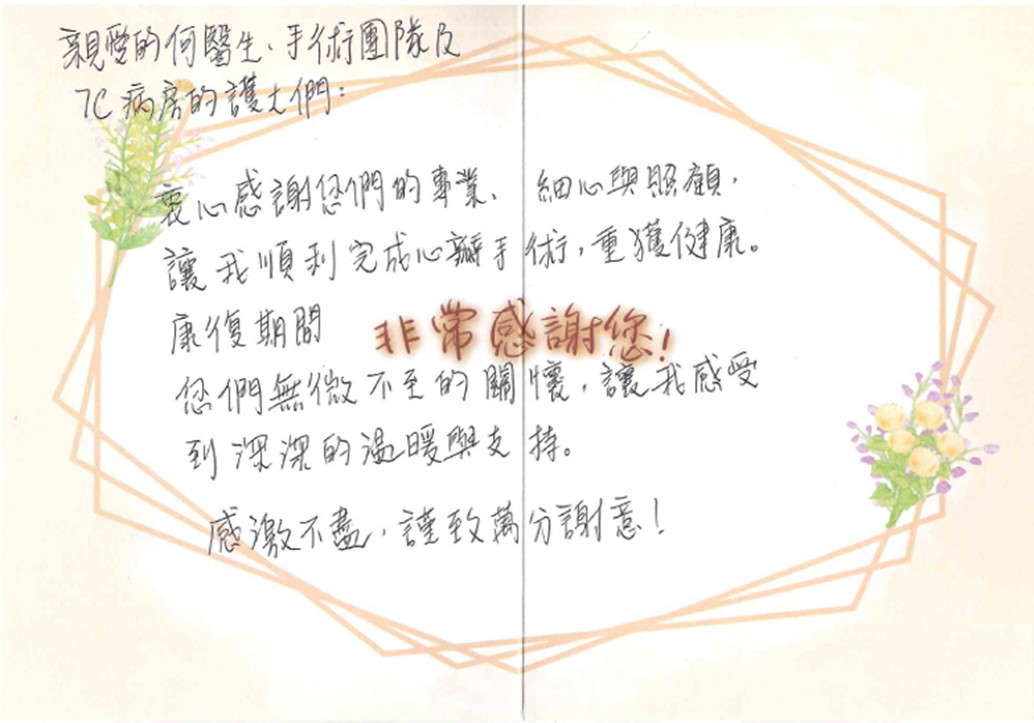 親愛的何醫生、手術團隊及
7C病房的護士們：
衷心感謝您們的專業、細心與照顧，
讓我順利完成心瓣手術，重獲健康。
康復期間
非常感謝您！
您們無微不至的關懷，讓我感受
到深深的溫暖與支持。
感激不盡，謹致萬分謝意！